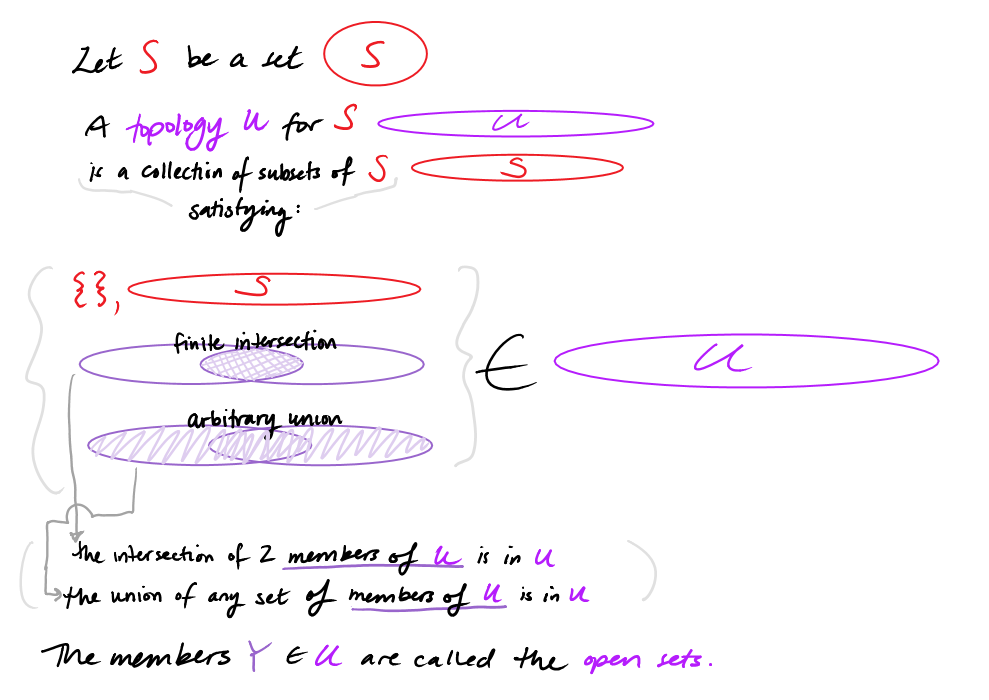 Let S be a set S
A topology U for S U
is a collection of subsets of S S
satisfying:
{}, S
finite intersection
∈ U
arbitrary union
the intersection of 2 members of U is in U
the union of any set of members of U is in U
The members Y ∈ U are called the open sets.